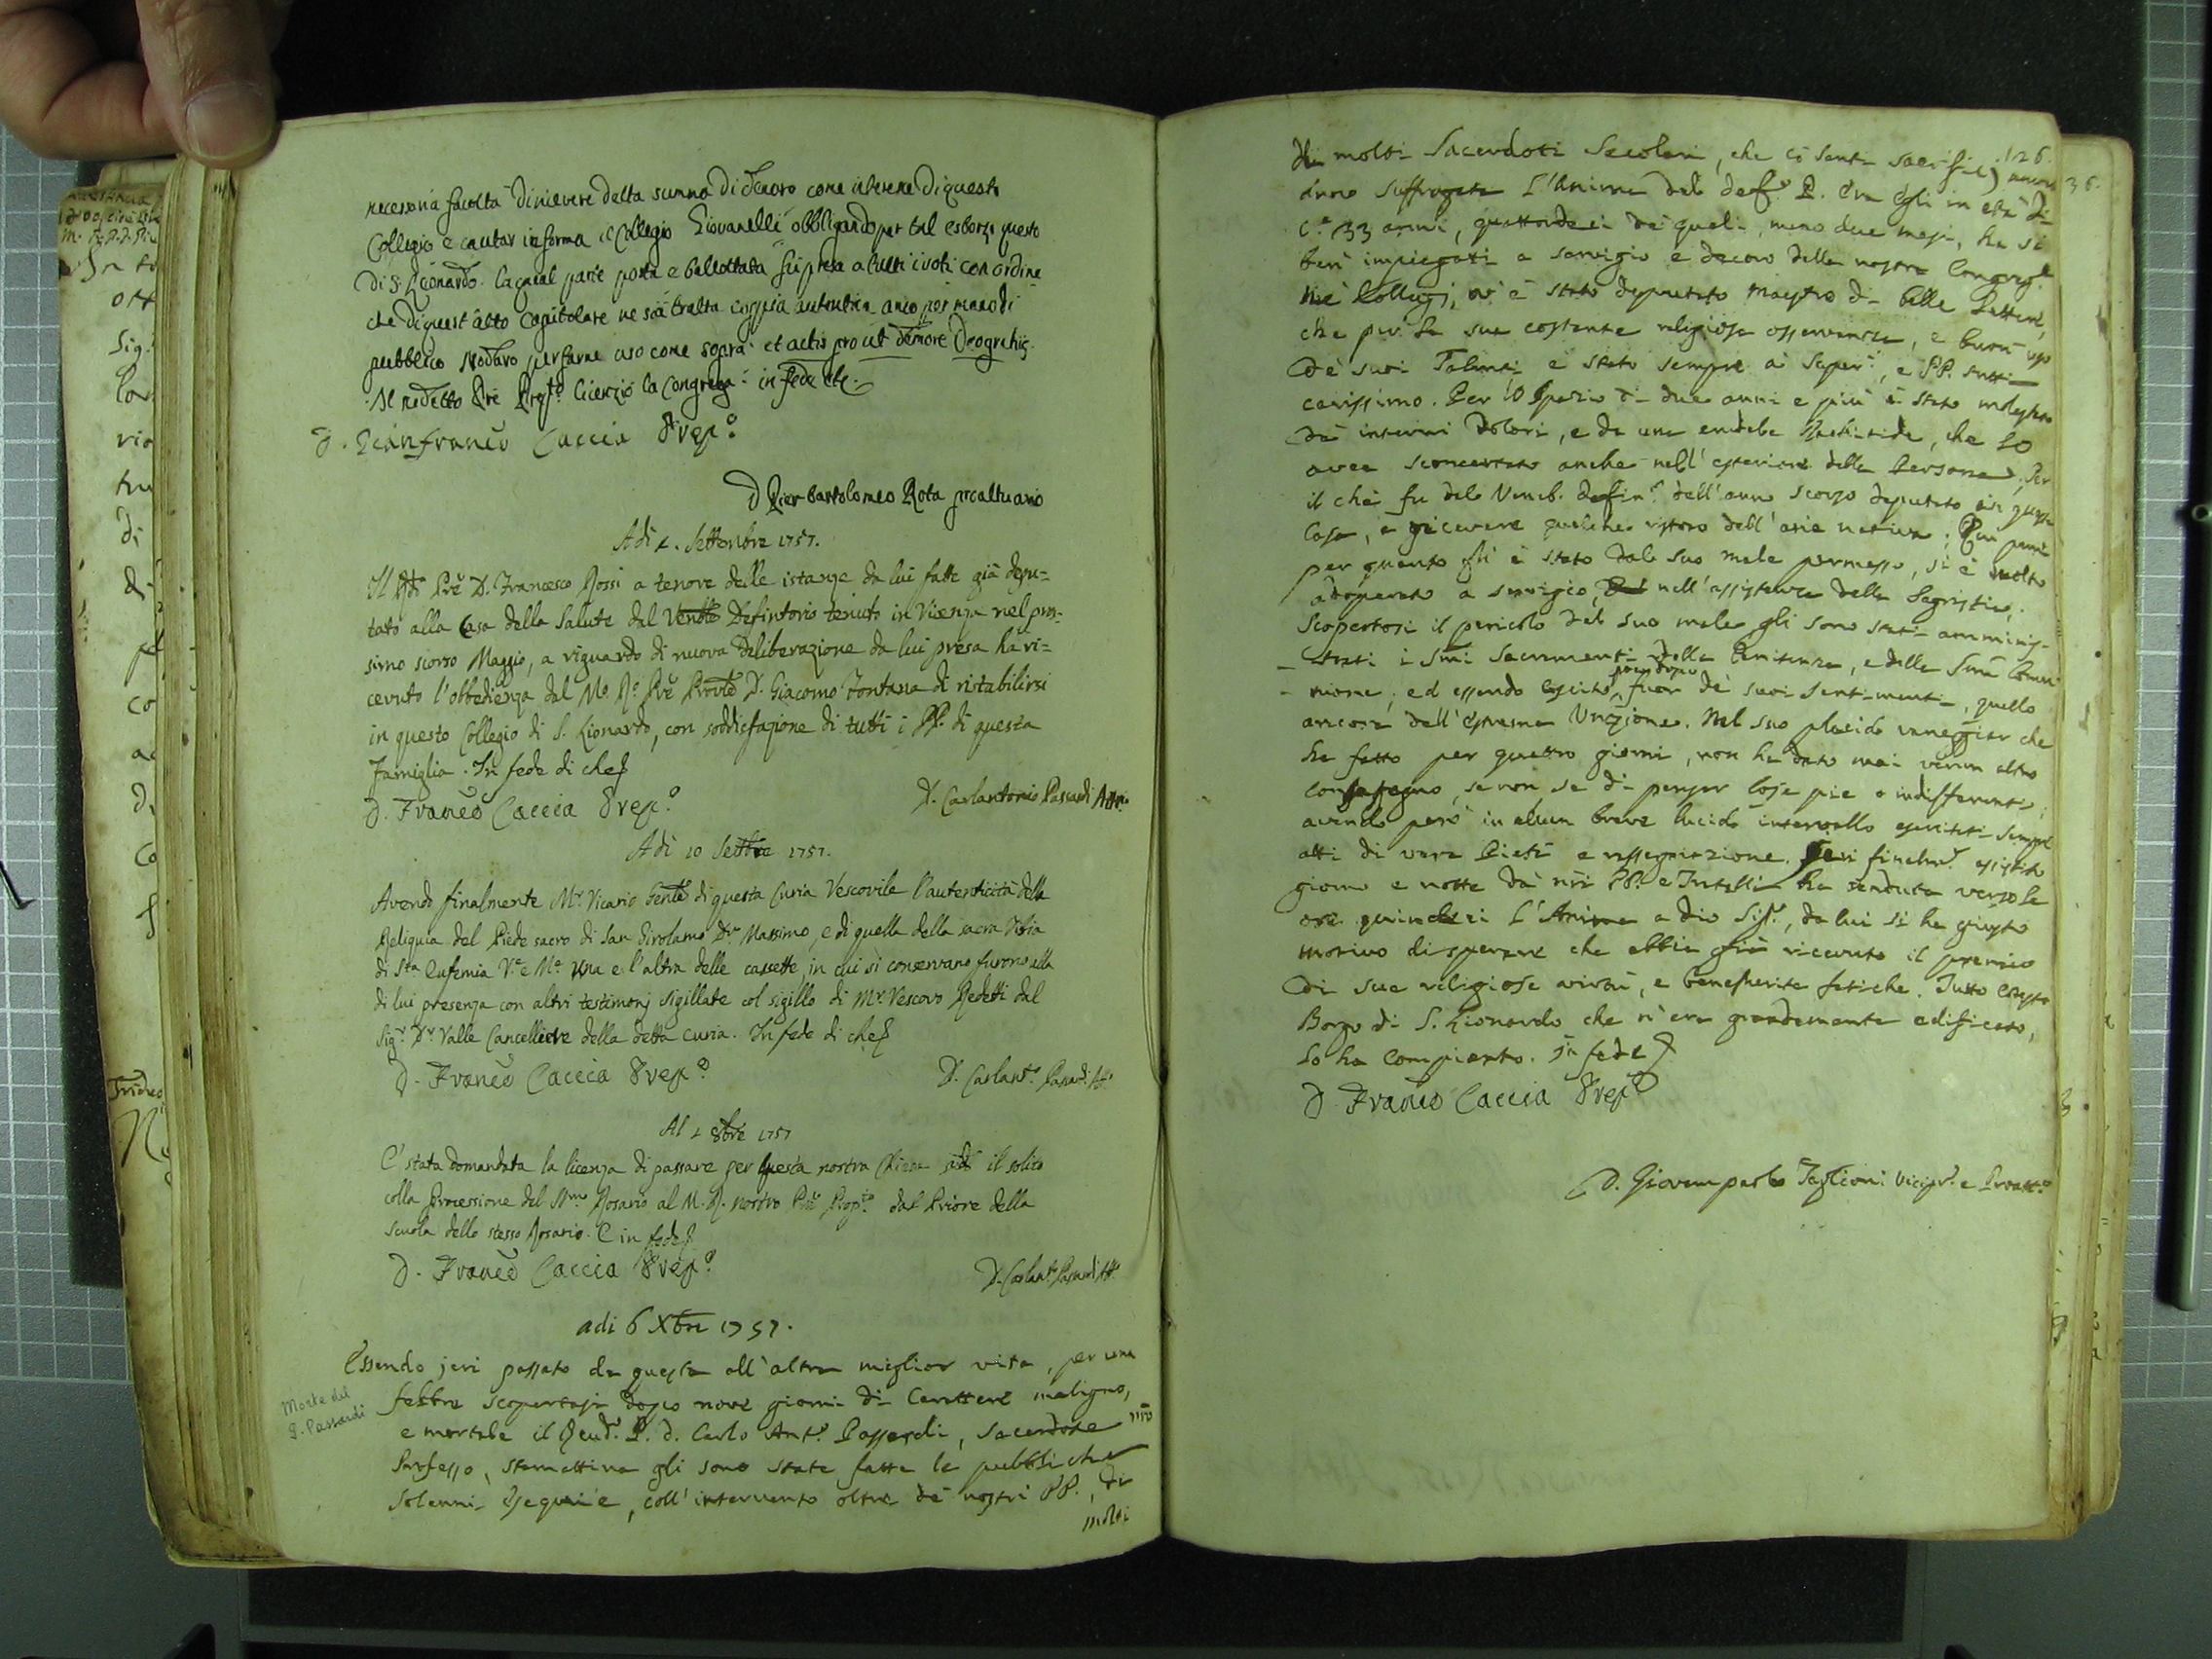 necessaria facoltà di ricevere detta summa di denaro come interene di questo
Collegio e cautar in forma il Collegio Giovanelli obbligando per tal esborzo questo
di S. Leonardo. la qual parte posta e ballottata fu presa a tutti i voti con ordine
che di quest'atto capitolare ne sia tratta coppia autentica anco per mano di
pubblico Nodaro per farne uso come sopra et actis pro ut de more Deo gratias
Il medetto Pre Prepto licenziò la Congregane in fede etc.
D. Gianfranco Caccia Prepto
D Pier Bartolomeo Rota proattuario
Adi 4. Settembre 1757.
Il Rdo Pre D. Francesco Rossi a tenore delle istanze da lui fatte già depu=
tato alla Casa della Salute dal Vendo Definitorio tenuto in Vicenza nel pros=
simo scorso Maggio, a riguardo di nuova deliberazione da lui presa ha ri=
cevuto l'obbedienza dal Mo Ro Pre Provle D. Giacomo Fontana di ristabilirsi
in questo Collegio di S. Lionardo, con soddisfazione di tutti i PP. di questa
Famiglia. In fede di che
D. Franco Caccia Prepto
D. Carlantonio Passardi Atto
Adi 10 Settbre 1757.
Avendo finalmente Mr Vicario Genle di questa Curia Vescovile l'autenticità della
Reliquia del Piede sacro di San Girolamo Dre Massimo, e di quella della sacra Tibia
di Sta Eufemia Ve e Me una e l'altra delle cassette in cui si conservano furono alla
di lui presenza con altri testimonj sigillate col sigillo di Mr Vescovo Redetti dal
Sigr Dr Valle Cancelliere della detta Curia. In fede di che
D. Franco Caccia Prepto
D. Carlanto Passardi Atto
Al 4 8bre 1757
E' stata domandata la licenza di passare per questa nostra Chiesa il solito
colla Processione del SSmo Rosario al M. R. nostro Pre Prepto dal Priore della
Scuola dello stesso Rosario. E in fede
D. Franco Caccia Prepto
D. Carlanto Passardi Atto
adi 6 Xbre 1757.
Essendo jeri passato da questa all'altra miglior vita, per una
Morte del
P. Passardi
febbre scopertasi dopo nove giorni di Carattere maligno,
e mortale il Rendo P. D. Carlo Anto Passardi, Sacerdote nro
Professo, stamattina gli sono state fatte le pubbliche
solenni Esequie, coll'intervento oltre de' nostri PP., di
molti
126.
36.
di molti Sacerdoti Secolari, che co' Santi sacrifizj
anno suffragata l'Anima del defo P. Era Egli in età di
Ca 33 anni, quattordeci de' quali, meno due mesi, ha sì
ben impiegati a servigio e decoro della nostra Congregne
ne' Collegj, ov' è stato deputato Maestro di belle Lettere,
che per la sua costante religiosa osservanza, e buon uso
de' suoi Talenti è stato sempre ai Superi, e PP. tutti
carissimo. Per lo spazio di due anni e più è stato molestato
da interni dolori, e da una crudele Rachitide, che lo
avea sconcertato anche nell'esteriore della Persona, Per
il che fu dal Veneb. Defino dell'anno scorso deputato in questa
Casa, a ricevere qualche ristoro dall'aria nativa. Qui pure
per quanto gli è stato dal suo male permesso, si è molto
adoperato a servigio, nell'assistenza della Sagristia.
Scopertosi il pericolo del suo male gli sono stati amminis-
-trati i Smi Sacramenti della Penitenza, e della Sma Comu-
-nione; ed essendo uscito poco dopo fuor de' suoi sentimenti, quello
ancora dell'Estrema Unzione. Nel suo placido vaneggiar che
ha fatto per quattro giorni, non ha dato mai verun altro
contrasegno, se non se di pensar cose pie o indifferenti,
avendo però in alcun breve lucido intervallo esercitati sempre
atti di vera Pietà e rassegnazione. Jeri finalmte assistito
giorno e notte da' nri PP. e Fratelli ha renduta verso le
ore quindeci l'Anima a Dio Sigr, da lui si ha giusto
motivo di sperare che abbia già ricevuto il premio
di sue religiose virtù, e benemerite fatiche. Tutto cotesto
Borgo di S. Lionardo che n'era grandemente edificato,
lo ha compianto. In fede
D. Franco Caccia Prepto
D. Giovanpaolo Taglioni Vicepr. e Proatto